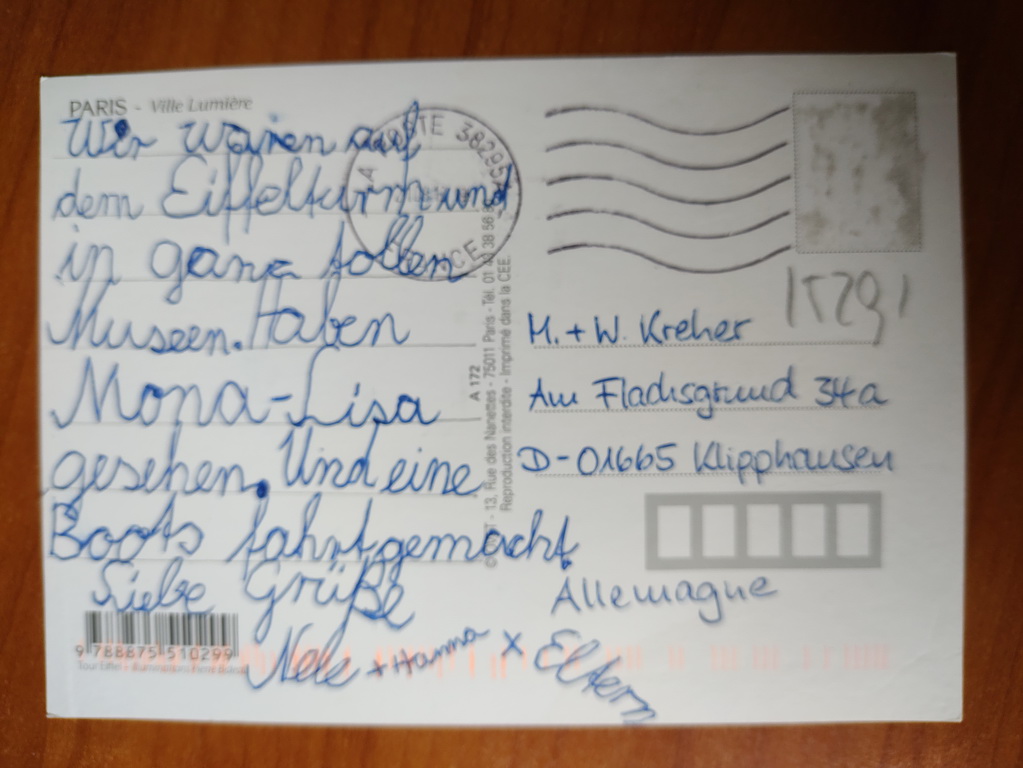 PARIS - Ville Lumière
Wir waren auf
dem Eiffelturm und
in ganz tollen
Museen. Haben
Mona-Lisa
gesehen. Und eine
Boots fahrt gemacht
Liebe Grüße
Nele + Hanna x Eltern
9 788875 510299
Tour Eiffel
A 172
13, Rue des Nanettes - 75011 Paris - Tél. 01
Reproduction interdite - Imprimé dans la CEE.
38295A
M. + W. Kreher
Am Flachsgrund 34a
D-01665 Klipphausen
Allemagne